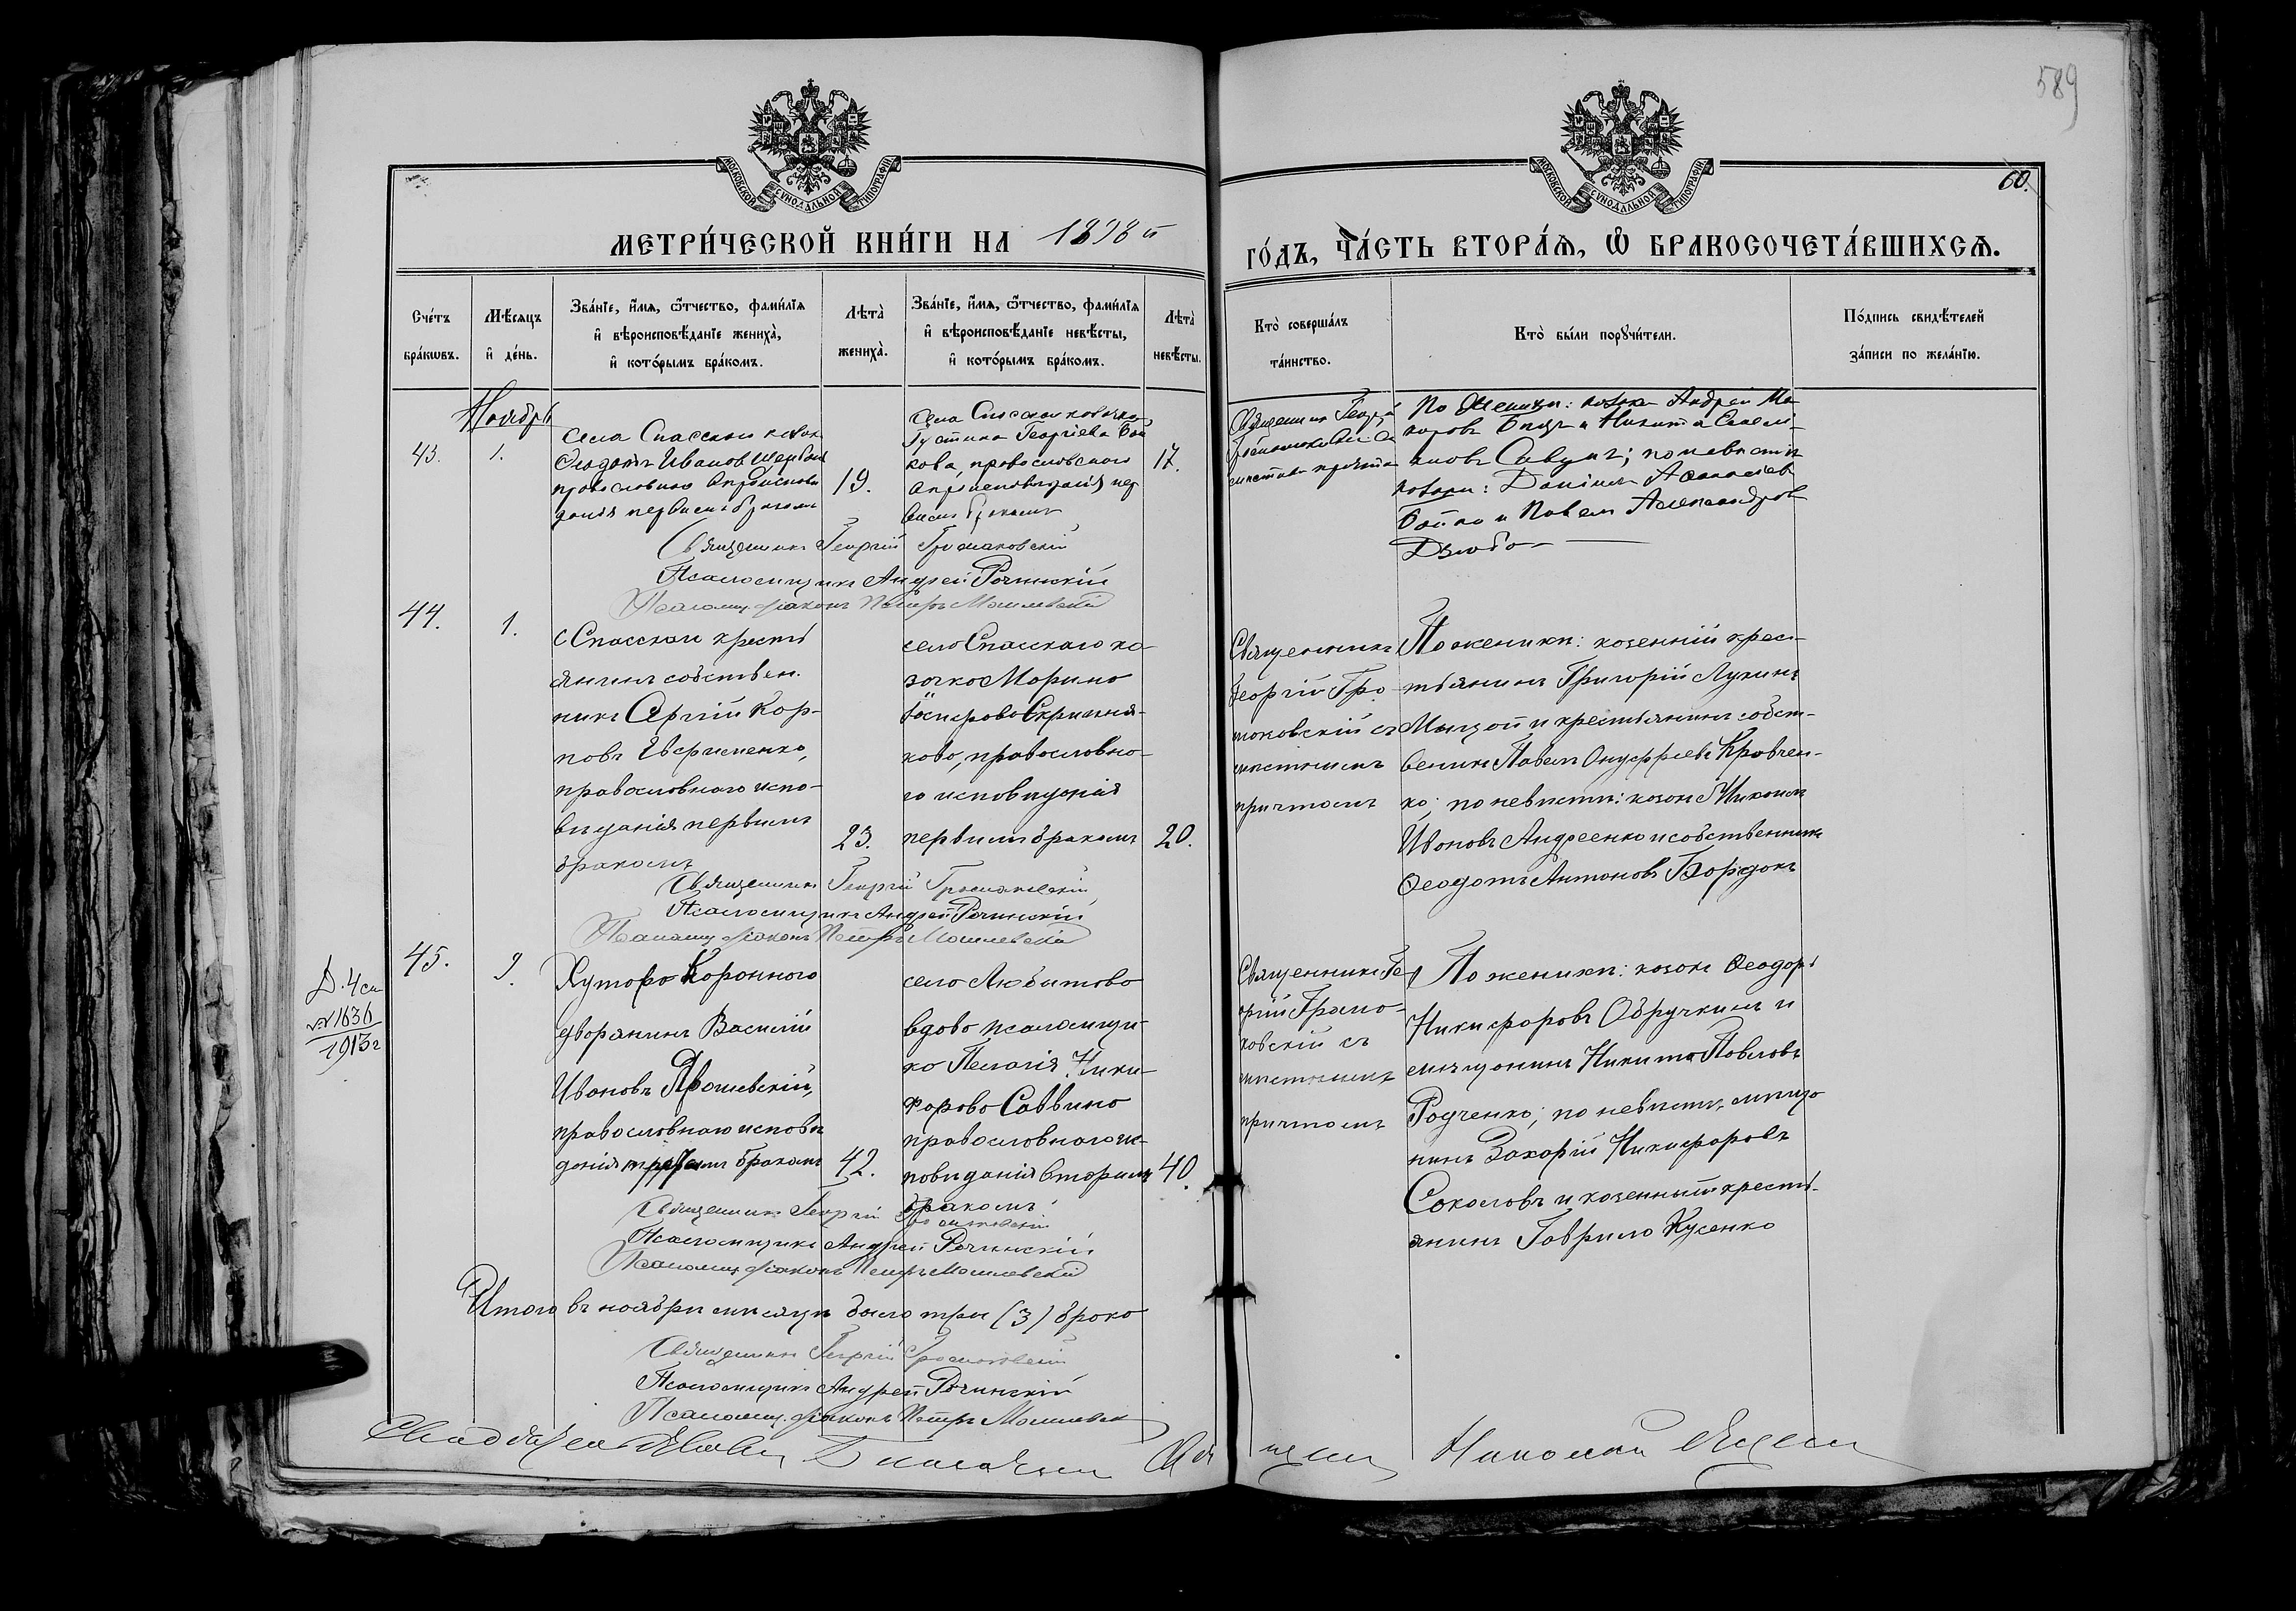 589
60.
МОСКОВСКОЙ СѴНОДАЛЬНОЙ ТИПОГРАФІИ
МОСКОВСКОЙ СѴНОДАЛЬНОЙ ТИПОГРАФІИ
МЕТРИ́ЧЕСКОЙ КНИ́ГИ НА 1898 й
ГО́ДЪ, ЧА́СТЬ ВТОРА́Я, Ѽ БРАКОСОЧЕТА́ВШИХСЯ.
Сче́тъ бра́кѡвъ.
Мѣ́сяцъ и҆ де́нь.
Зва́нїе, и҆́мя, ѻ҆́тчество, фами́лїя
и҆ вѣроисповѣ́данїе жениха̀,
и҆ кото́рымъ бра́комъ.
Лѣта̀ жениха̀.
Зва́нїе, и҆́мя, ѻ҆́тчество, фами́лїя
и҆ вѣроисповѣ́данїе невѣ́сты,
и҆ кото́рымъ бра́комъ.
Лѣта̀ невѣ́сты.
Кто̀ соверша́лъ
та́инство.
Кто̀ бы́ли порꙋчи́тели.
По́дпись свидѣ́телей
за́писи по жела́нїю.
Ноябрь
43.
1.
Села Спасскаго козак
Феодотъ Иванов
православнаго вѣроисповѣ
данія первымъ бракомъ
19.
Села Спасскаго козачка
Устина Георгіева Бой
кова, православнаго
вѣроисповѣданія пер
вымъ бракомъ
17.
Священникъ Георгій
Громаковскій съ
мѣстнымъ причтом
По женихѣ: козаки Андрей Ма
каровъ Бицъ и Никита Самой
ловъ Савунъ; по невѣстѣ
козаки: Даніилъ Афанасіевъ
Бойко и Павелъ Александров
Дзюба
Священникъ Георгій Громаковскій
Псаломщикъ Андрей Рочинскій
Псаломщ. діаконъ Петръ
44.
1.
с Спасскаго кресть
янинъ собствен
никъ Сергій Кар-
повъ Евфименко,
православнаго испо-
вѣданія первымъ
бракомъ
23.
село Спасскаго ка-
зачка Марина
Скрипня-
кова, православна-
го исповѣданія
первымъ бракомъ
20.
Священникъ
Георгій Гро-
маковскій съ
мѣстнымъ
причтомъ
По женихѣ: козенній крес-
тьянинъ Григорій Лукинъ
и крестьянинъ собст-
венникъ Павелъ Онуфріевъ Кравчен-
ко; по невѣстѣ: козакъ Никонъ
Ивановъ Андреенко и собственникъ
Феодотъ Антоновъ Бардакъ
Священникъ Георгій Громаковскій
Псаломщикъ Андрей Рочинскій
Псаломщ. діаконъ Петръ
45.
9.
Д. 4 ст
№ 1636
1913 г
Хутора Коронного
дворянинъ Василій
Ивановъ Ярошевскій,
православнаго исповѣ
данія третьимъ бракомъ
42.
село Любитово
вдова псаломщи-
ка Пелагія Ники-
форова Саввина
православнаго ис-
повѣданія вторымъ
бракомъ
40.
Священникъ Ге-
оргій Грома-
ковскій съ
мѣстнымъ
причтомъ
По женихѣ: козакъ Феодоръ
Никифоровъ Обручкинъ и
мѣщанинъ Никита Павловъ
Радченко; по невѣстѣ мѣща
нинъ Захарій Никифоровъ
Соколовъ и козенный кресть-
янинъ Гаврило Куценко
Священникъ Георгій Громаковскій
Псаломщикъ Андрей Рочинскій
Псаломщ. діаконъ Петръ
Итого въ ноябрѣ мѣсяцѣ было три (3) брака
Священникъ Георгій Громаковскій
Псаломщикъ Андрей Рочинскій
Псаломщ. діаконъ Петръ
Николай